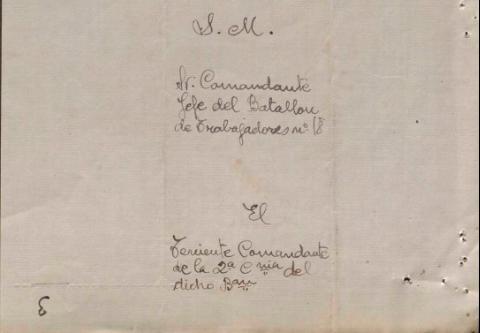 S. M.
Sr. Comandante
Jefe del Batallon
de Trabajadores nº 18
El
Teniente Comandante
de la 2ª Cñia del
dicho Bon
E